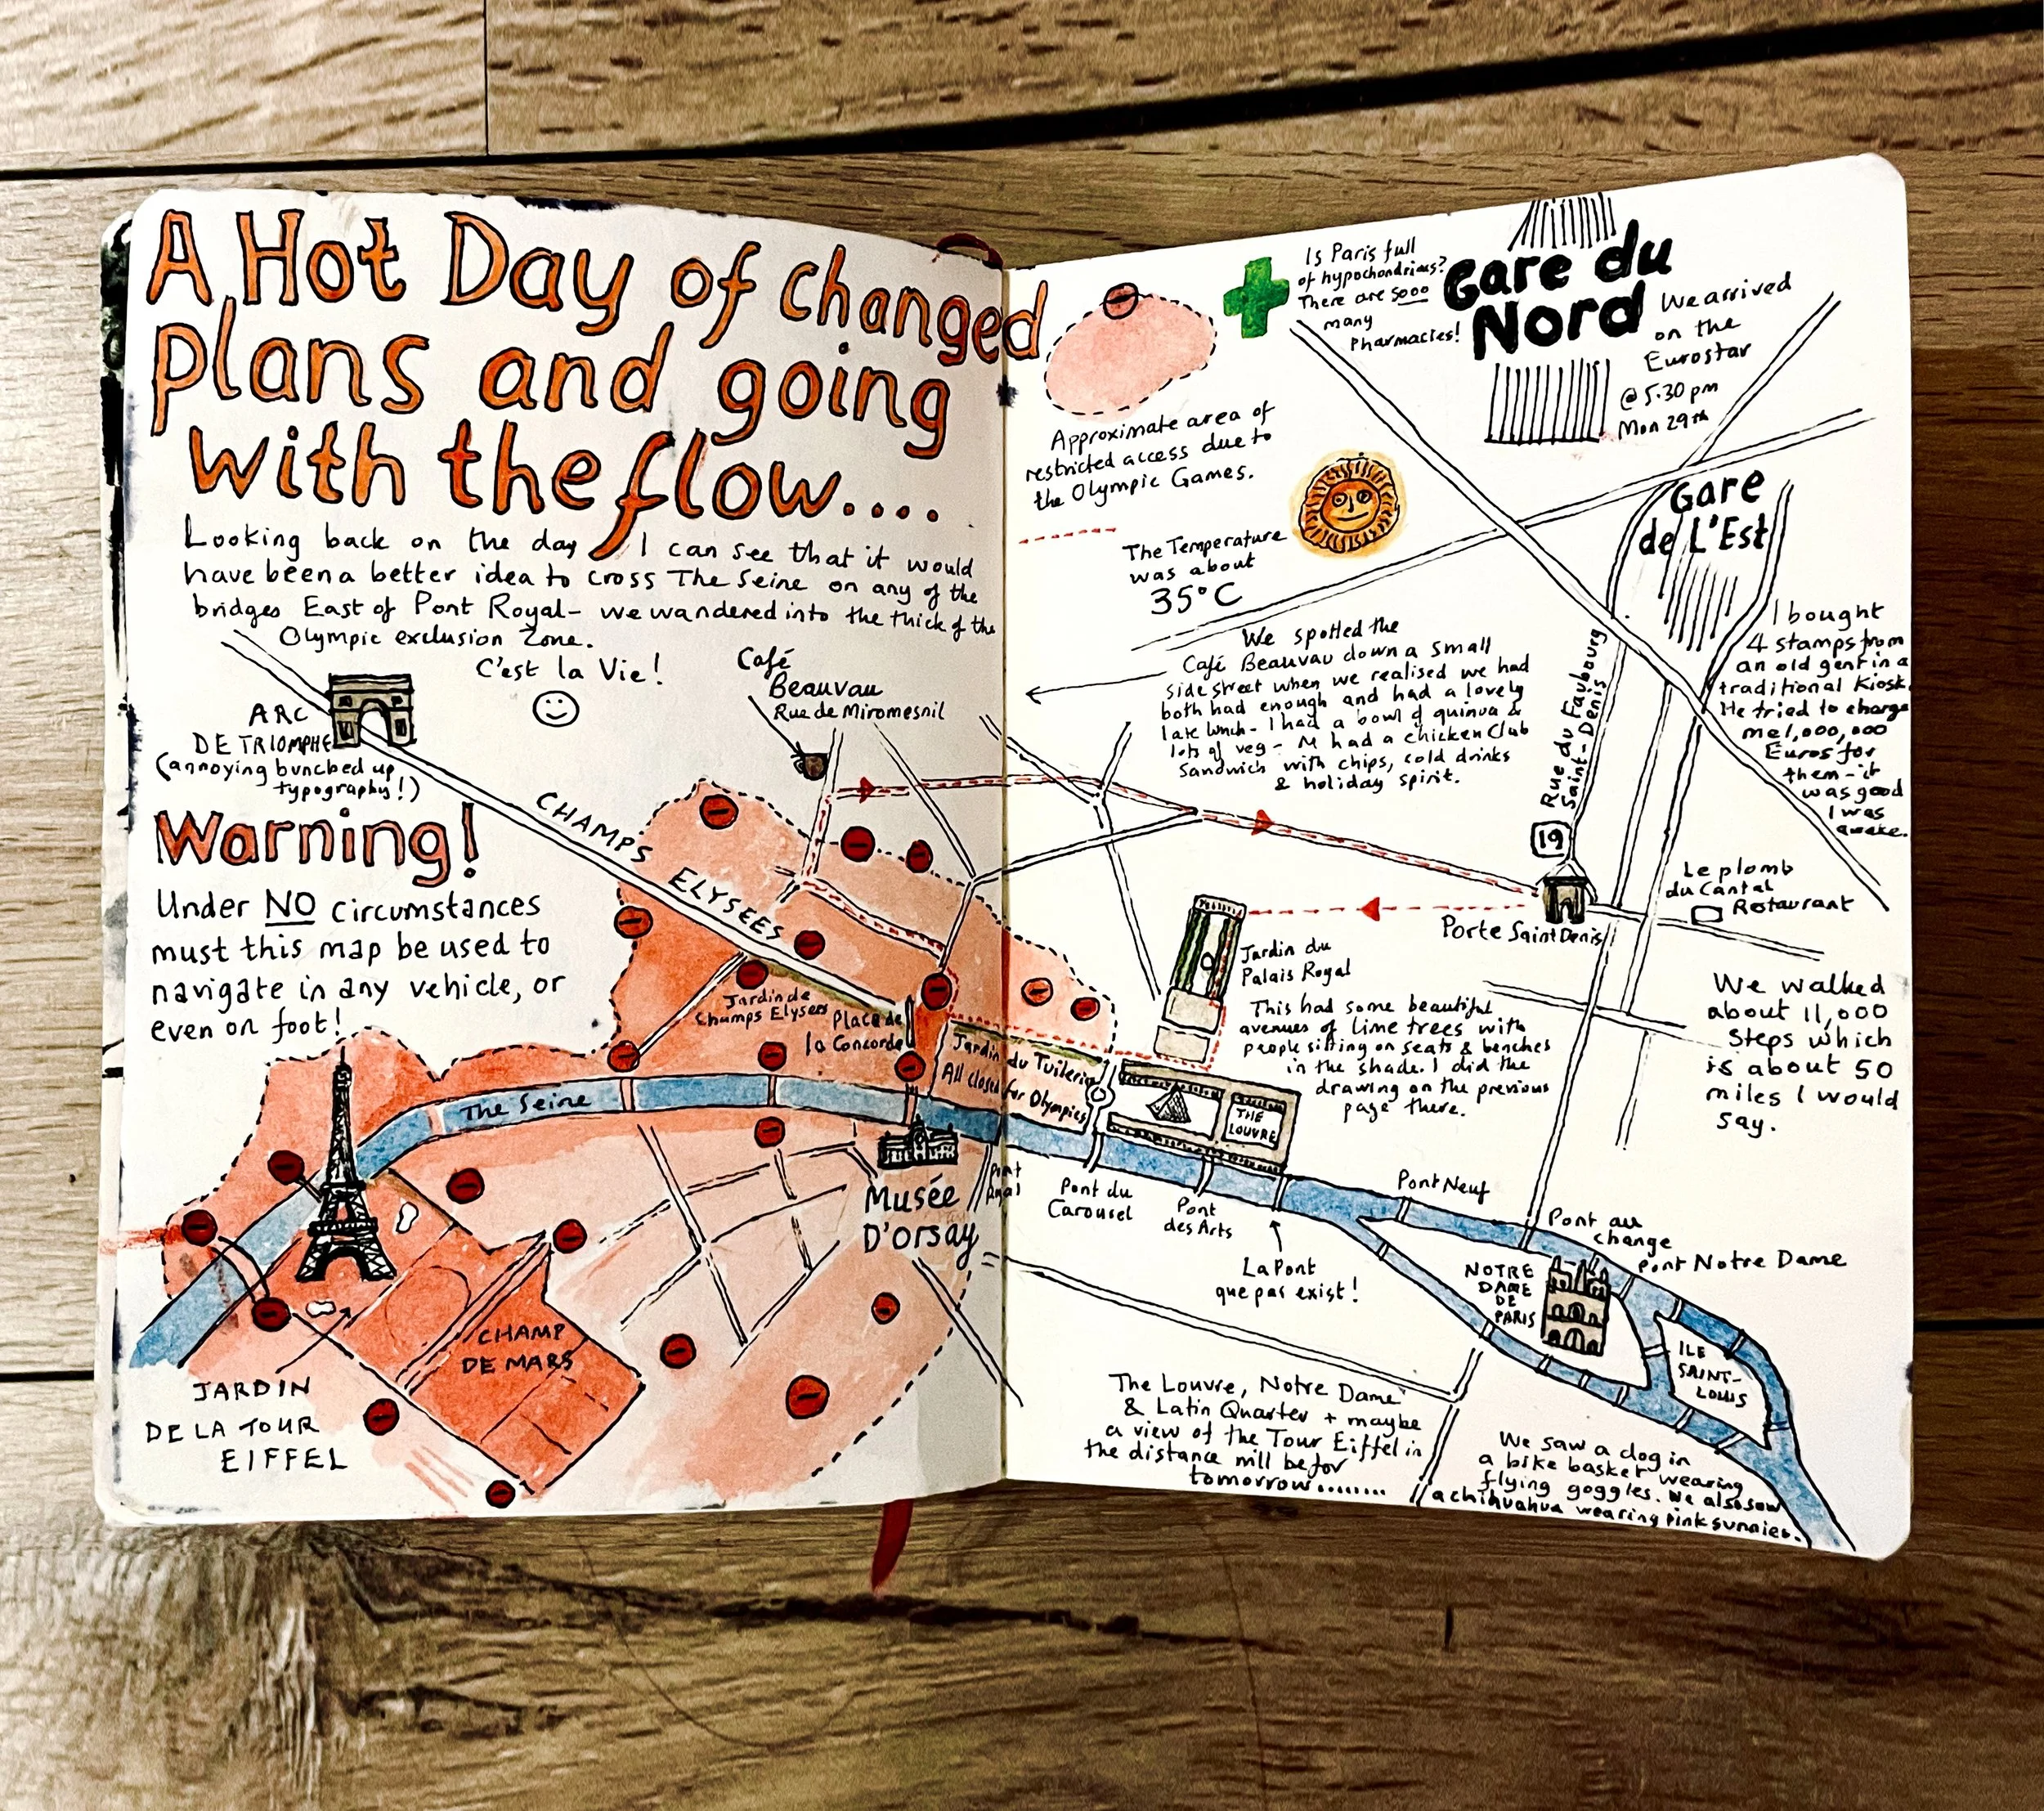 A Hot Day of changed
plans and going
with the flow....
Looking back on the day I can see that it would
have been a better idea to cross The Seine on any of the
bridges East of Pont Royal - we wandered into the thick of the
Olympic exclusion Zone.
C'est la Vie!
ARC
DE TRIOMPHE
(annoying bunched up
typography!)
Café
Beauvau
Rue de Miromesnil
CHAMPS ELYSEES
Warning!
Under NO circumstances
must this map be used to
navigate in any vehicle, or
even on foot!
Jardin de
Champs Elysees
Place de
la Concorde
Jardin du Tuilerie
All closed for Olympics
The Seine
Musée
D'orsay
Pont
Royal
CHAMP
DE MARS
JARDIN
DE LA TOUR
EIFFEL
Is Paris full
of hypochondriacs?
There are sooo
many
Pharmacies!
Gare du
Nord
We arrived
on the
Eurostar
@ 5.30 pm
Mon 29th
Approximate area of
restricted access due to
the Olympic Games.
The Temperature
was about
35°C
Gare
de L'Est
We spotted the
Café Beauvau down a small
side street when we realised we had
both had enough and had a lovely
late lunch - I had a bowl of quinua &
lots of veg - M had a chicken Club
Sandwich with chips, cold drinks
& holiday spirit.
Rue du Faubourg
Saint-Denis
I bought
4 stamps from
an old gent in a
traditional Kiosk.
He tried to charge
me 1,000,000
Euros for
them - it
was good
I was
awake.
19
Le plomb
du Cantal
Restaurant
Porte Saint Denis
Jardin du
Palais Royal
This had some beautiful
avenues of lime trees with
people sitting on seats & benches
in the shade. I did the
drawing on the previous
page there.
We walked
about 11,000
Steps which
is about 50
miles I would
say.
THE
LOUVRE
Pont du
Carousel
Pont
des Arts
La Pont
que pas exist!
Pont Neuf
Pont au
change
Pont Notre Dame
NOTRE
DAME
DE
PARIS
ILE
SAINT-
LOUIS
The Louvre, Notre Dame
& Latin Quarter + maybe
a view of the Tour Eiffel in
the distance will be for
tomorrow........
We saw a dog in
a bike basket wearing
flying goggles. We also saw
a chihuahua wearing pink sunnies.